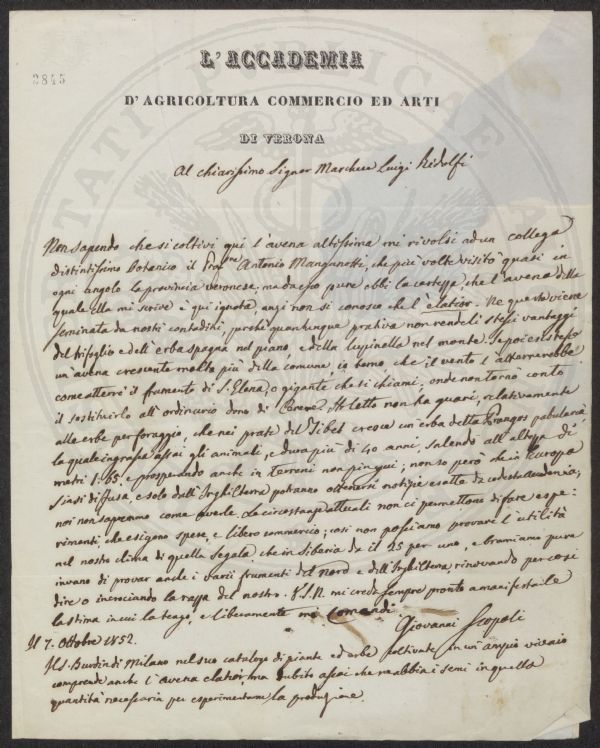 L'ACCADEMIA
2845
D'AGRICOLTURA COMMERCIO ED ARTI
DI VERONA
Al chiarissimo Signor Marchese Luigi Ridolfi
Non sapendo che si coltivi qui l'avena altissima mi rivolsi ad un collega
distintissimo botanico il Prof.re Antonio Manganotti, che più volte visitò quasi in
ogni angolo la provincia veronese, ma da esso pure ebbi la certezza, che l'avena della
quale Ella mi scrive è qui ignota, anzi non si conosce che l'elatior. Ne questa viene
seminata da nostri contadini, perchè quantunque prativa non rende li stessi vantaggi
del trifoglio e dell'erba spagna nel piano, e della lupinella nel monte. Se poi esistesse
un'avena crescente molto più della comune, io temo che il vento l'atterrerebbe
come atterrì il frumento di S. Elena, o gigante che si chiami, onde non tornò conto
il sostituirlo all'ordinario dono di Cerere. Ho letto non ha guari, relativamente
alle erbe per foraggio, che nei prati del Tibet cresce un'erba detta Prangos pabularia
la quale ingrassa assai gli animali, e dura più di 40 anni, salendo all'altezza di
metri 1.65, e prosperando anche in terreni non pingui; non so però che in Europa
siasi diffusa, e solo dall'Inghilterra potranno ottenersi notizie esatte da codesta Accademia;
noi non sapremmo come averle. Le circostanze attuali non ci permettono di fare espe=
rimenti che esigono spese, e libero commercio; così non possiamo provare l'utilità
nel nostro clima di quella segala che in Siberia dà il 25 per uno, e bramiamo pure
invano di provar anche i varii frumenti del Nord e dell'Inghilterra, rinovando per così
dire o incrociando la razza del nostro. V.S.Ill. mi creda sempre pronto a manifestarle
la stima in cui la tengo, e liberamente mi comandi
Giovanni Scopoli
Il 7. Ottobre 1852.
Il S. Burdin di Milano nel suo catalogo di piante ed erbe coltivate in un ampio vivaio
comprende anche l'avena elatior, ma dubito assai che ne abbia i semi in quella
quantità necessaria per esperimentarne la produzione.